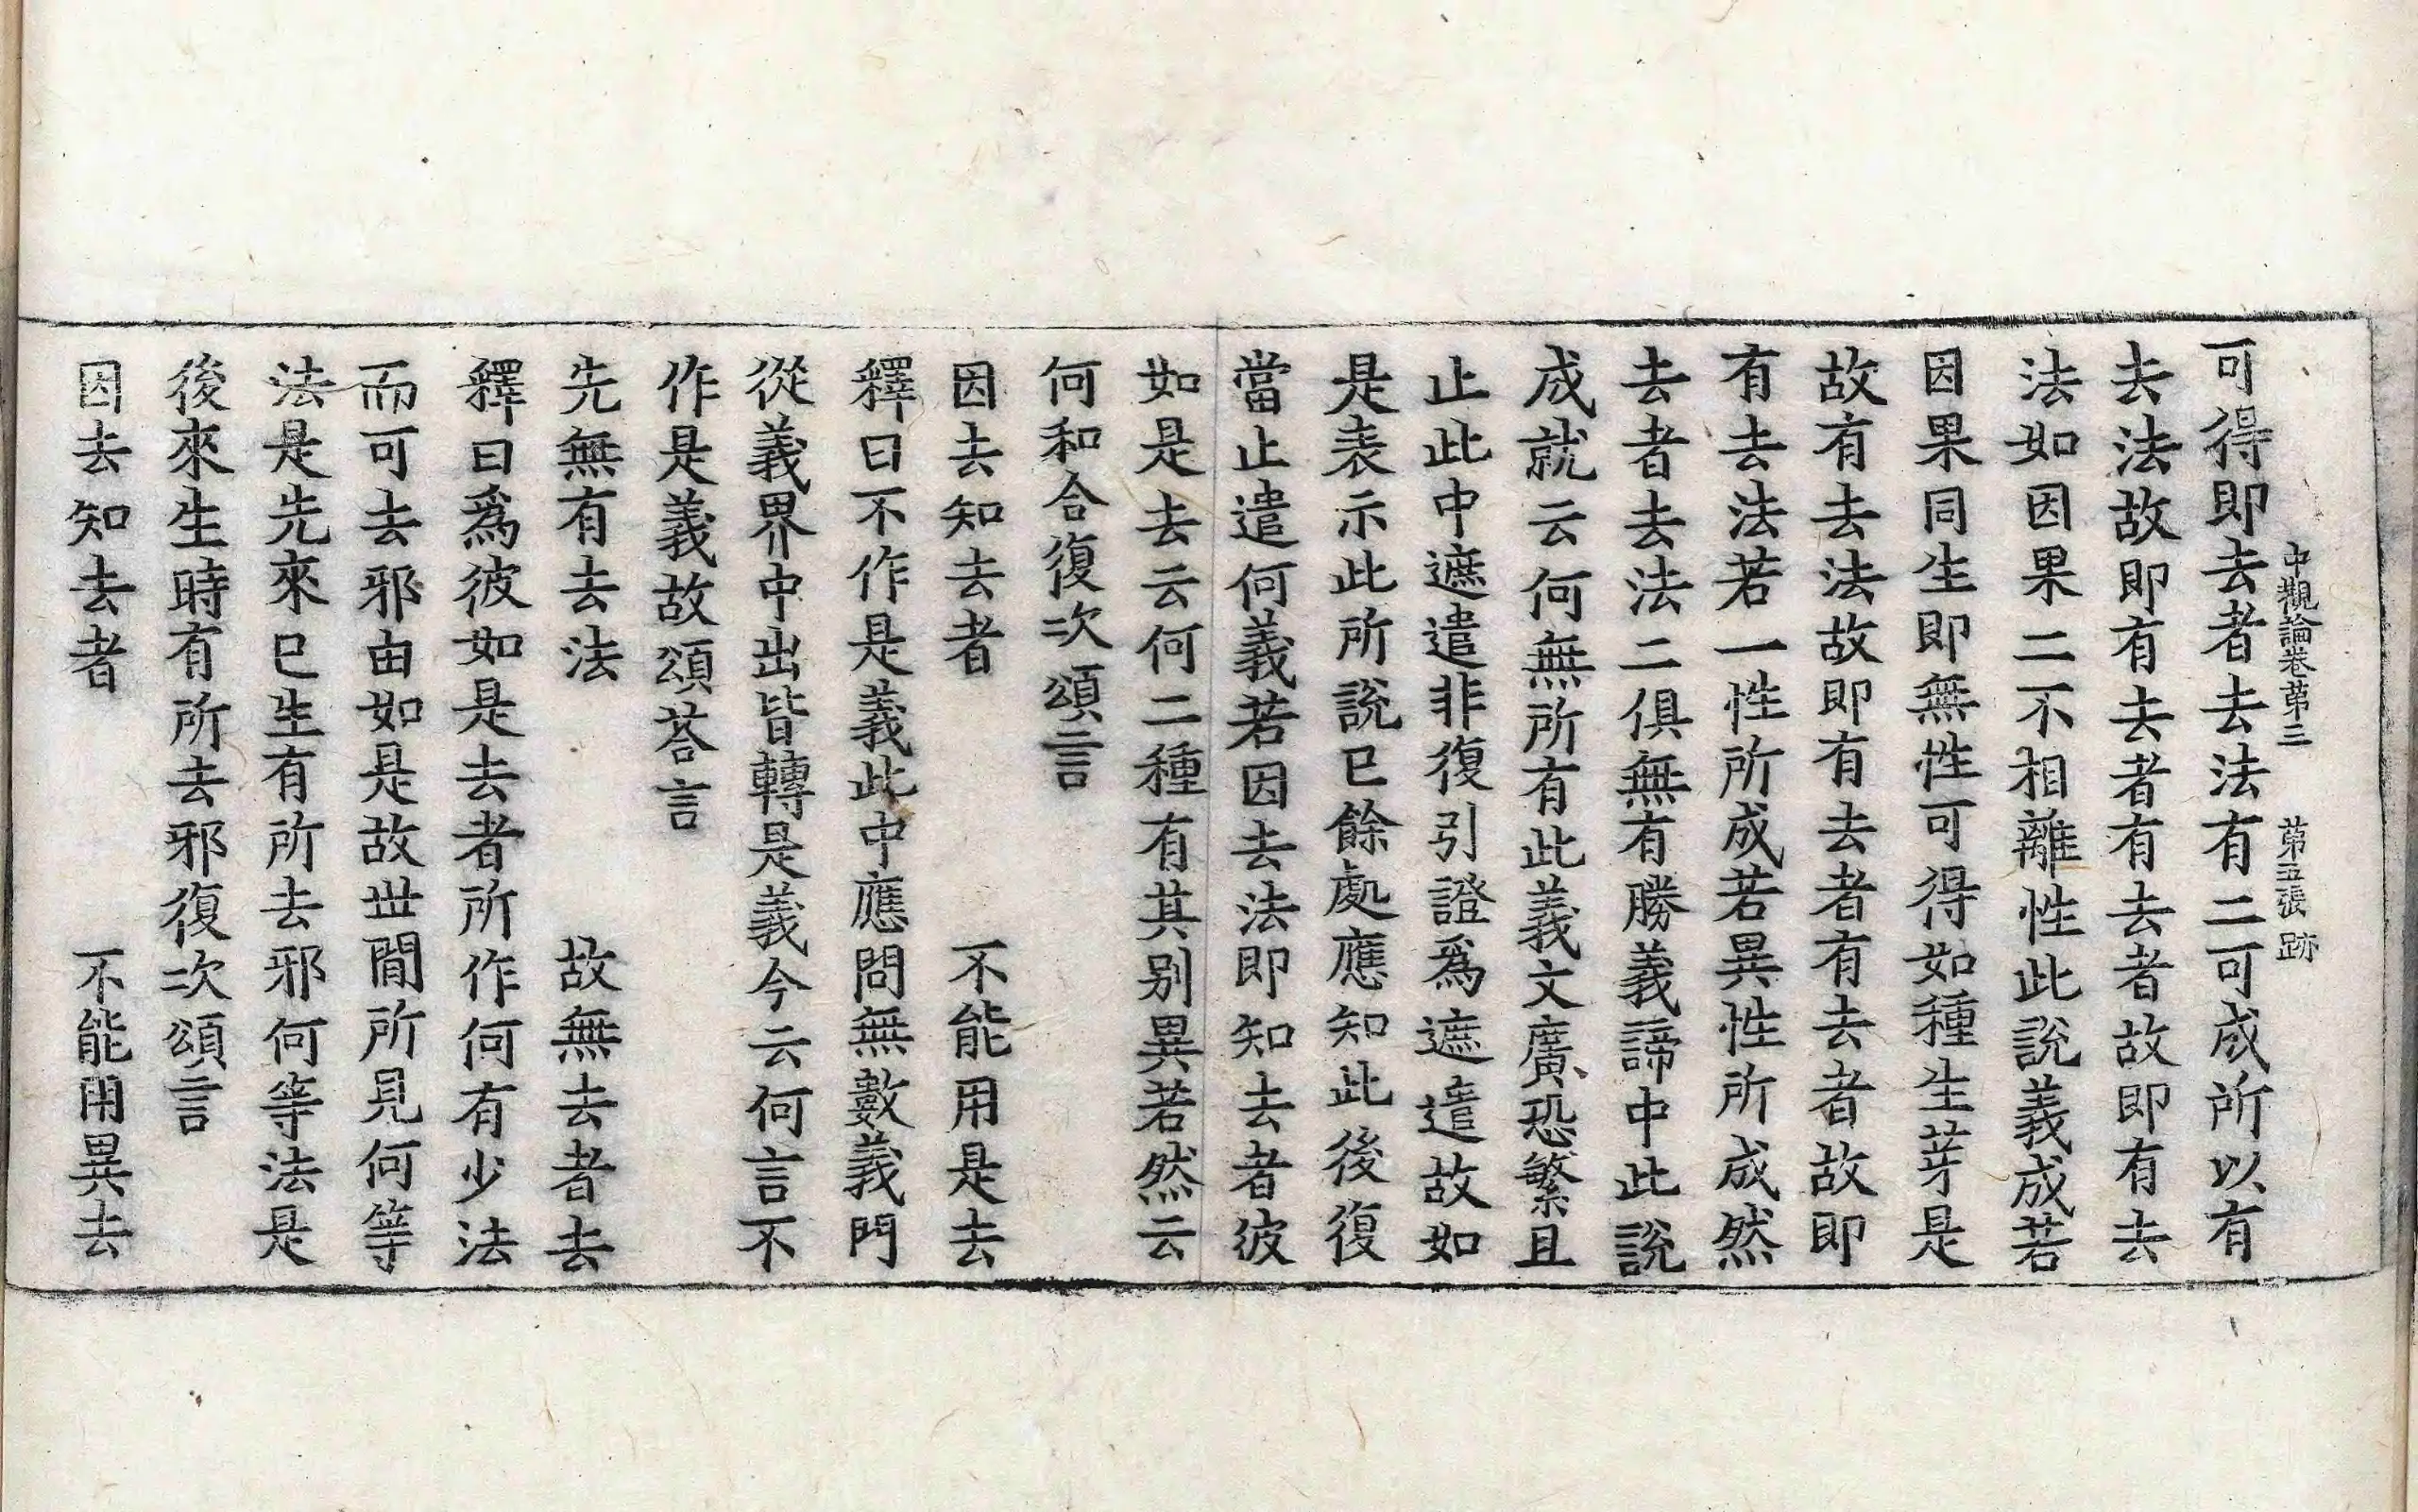 中觀論卷第三 第五張 跡
可得即去者去法有二可成所以有
去法故即有去者有去者故即有去
法如因果二不相離性此說義成若
因果同生即無性可得如種生芽是
故有去法故即有去者有去者故即
有去法若一性所成若異性所成然
去者去法二俱無有勝義諦中此說
成就云何無所有此義文廣恐繁且
止此中遮遣非復引證爲遮遣故如
是表示此所說已餘處應知此後復
當止遣何義若因去法即知去者彼
如是去云何二種有其別異若然云
何和合復次頌言
因去知去者 不能用是去
釋曰不作是義此中應問無數義門
從義界中出皆轉是義今云何言不
作是義故頌荅言
先無有去法 故無去者去
釋曰爲彼如是去者所作何有少法
而可去邪由如是故世間所見何等
法是先來已生有所去邪何等法是
後來生時有所去邪復次頌言
因去知去者 不能用異去